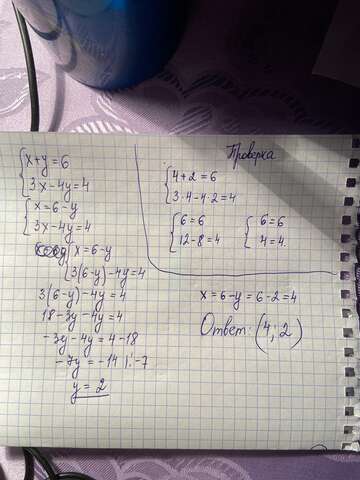 x+y=6
3x-4y=4
x=6-y
3x-4y=4
x=6-y
3(6-y)-4y=4
3(6-y)-4y=4
18-3y-4y=4
-3y-4y=4-18
-7y=-14 |:-7
y=2
Проверка
4+2=6
3·4-4·2=4
6=6
12-8=4
6=6
4=4
x=6-y=6-2=4
Ответ: (4;2)